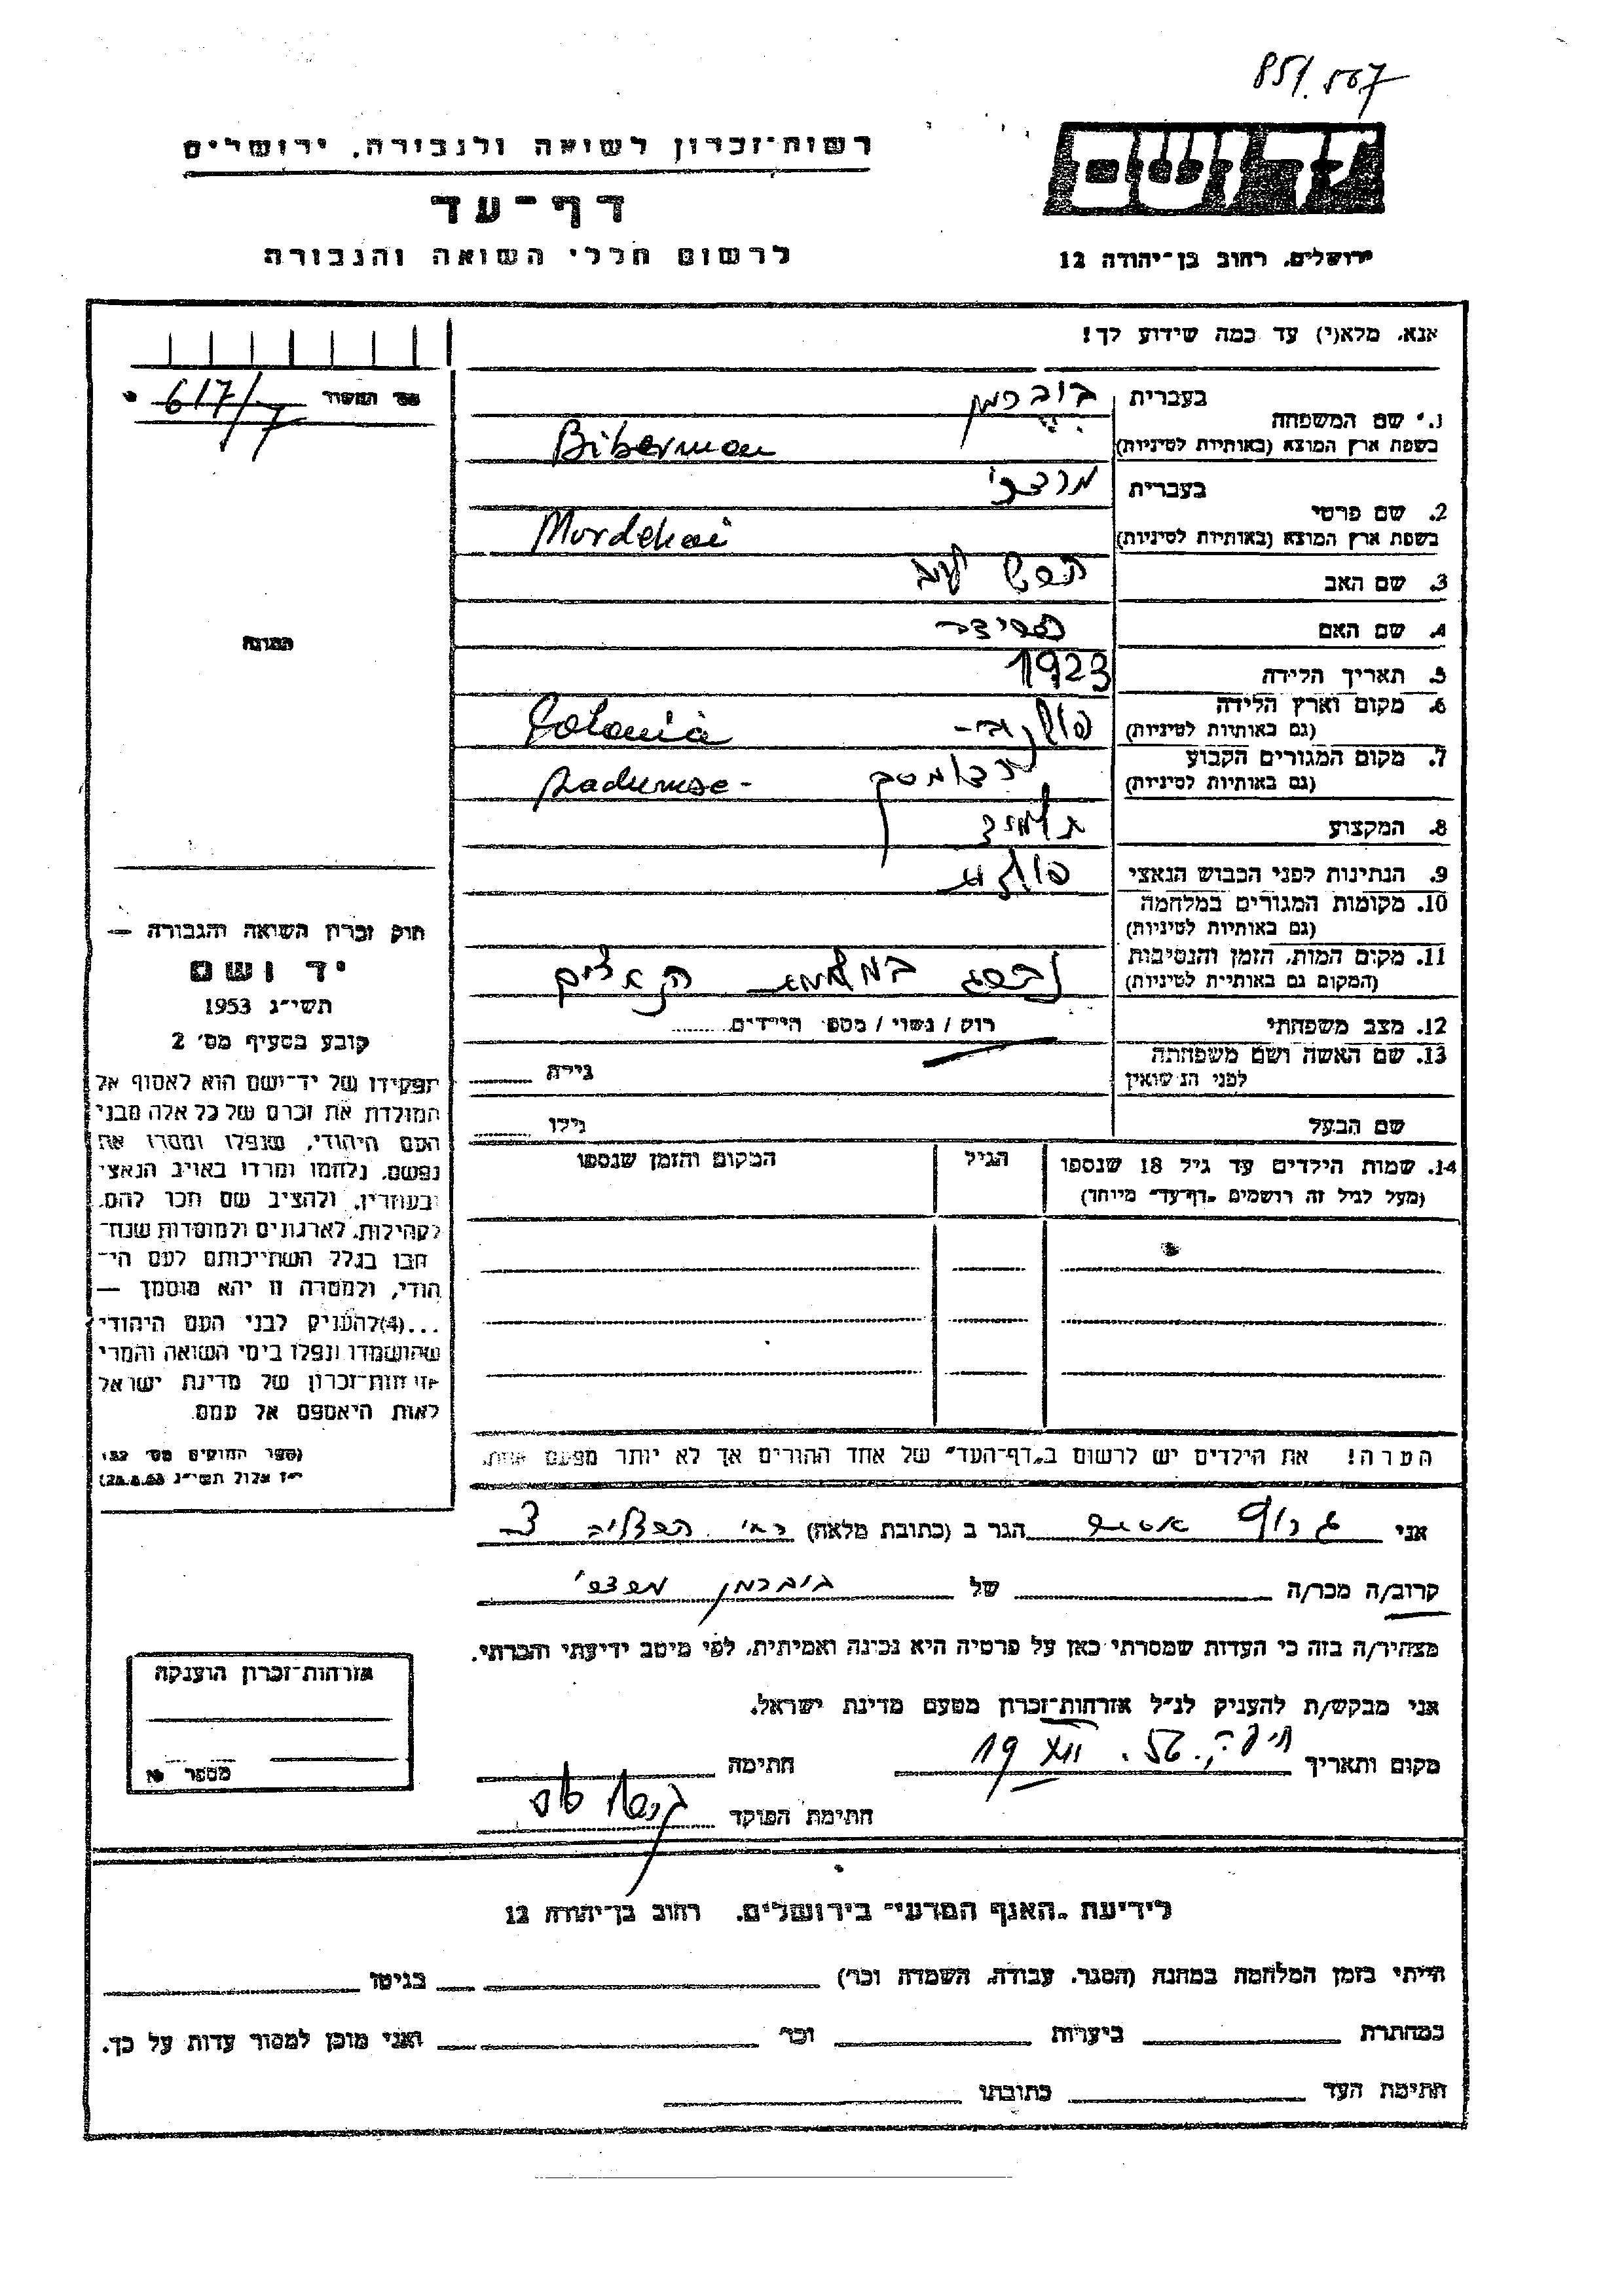 851.567
רשות-זכרון לשואה ולגבורה, ירושלים
דף-עד
לרשום חללי השואה והגבורה
ירושלים, רחוב בן-יהודה 12
אנא, מלא(י) עד כמה שידוע לך!
617/7
1. שם המשפחה
בעברית ביברמן
בשפת ארץ המוצא (באותיות לטיניות) Biberman
2. שם פרטי
בעברית מרדכי
בשפת ארץ המוצא (באותיות לטיניות) Mordehai
3. שם האב
4. שם האם
5. תאריך הלידה 1923
6. מקום וארץ הלידה
(גם באותיות לטיניות) Polonia
7. מקום המגורים הקבוע
(גם באותיות לטיניות)
8. המקצוע תלמיד
9. הנתינות לפני הכבוש הנאצי
10. מקומות המגורים במלחמה
(גם באותיות לטיניות)
11. מקום המות, הזמן והנסיבות
(המקום גם באותיות לטיניות)
12. מצב משפחתי רוק / נשוי / מספר הילדים
13. שם האשה ושם משפחתה
לפני הנשואין גילה
שם הבעל גילו
14. שמות הילדים עד גיל 18 שנספו הגיל המקום והזמן שנספו
(מעל לגיל זה רושמים "דף-עד" מיוחד)
הערה! את הילדים יש לרשום ב"דף-העד" של אחד ההורים אך לא יותר מפעם אחת.
התמונה
חוק זכרון השואה והגבורה —
יד ושם
תשי"ג 1953
קובע בסעיף מס' 2
תפקידו של יד-ושם הוא לאסוף אל
המולדת את זכרם של כל אלה מבני
העם היהודי, שנפלו ומסרו את
נפשם, נלחמו ומרדו באויב הנאצי
ובעוזריו, ולהציב שם וזכר להם,
לקהילות, לארגונים ולמוסדות שנח־
רבו בגלל השתייכותם לעם הי־
הודי, ולמטרה זו יהא מוסמך —
...(4) להעניק לבני העם היהודי
שהושמדו ונפלו בימי השואה והמרי
אזרחות-זכרון של מדינת ישראל
לאות היאספם אל עמם.
(ספר החוקים מס' 132
י"ז אלול תשי"ג 28.8.53)
אני הגר ב (כתובת מלאה)
קרוב/ה מכר/ה של ביברמן מרדכי
מצהיר/ה בזה כי העדות שמסרתי כאן על פרטיה היא נכונה ואמיתית, לפי מיטב ידיעתי והכרתי.
אני מבקש/ת להעניק לנ"ל אזרחות-זכרון מטעם מדינת ישראל.
מקום ותאריך 19 XII. 56. חיפה חתימה
חתימת הפוקד
אזרחות-זכרון הוענקה
מספר
לידיעת "האגף המדעי" בירושלים, רחוב בן-יהודה 12
הייתי בזמן המלחמה במחנה (הסגר, עבודה, השמדה וכו') בגיטו
במחתרת ביערות וכו' ואני מוכן למסור עדות על כך.
חתימת העד כתובתו